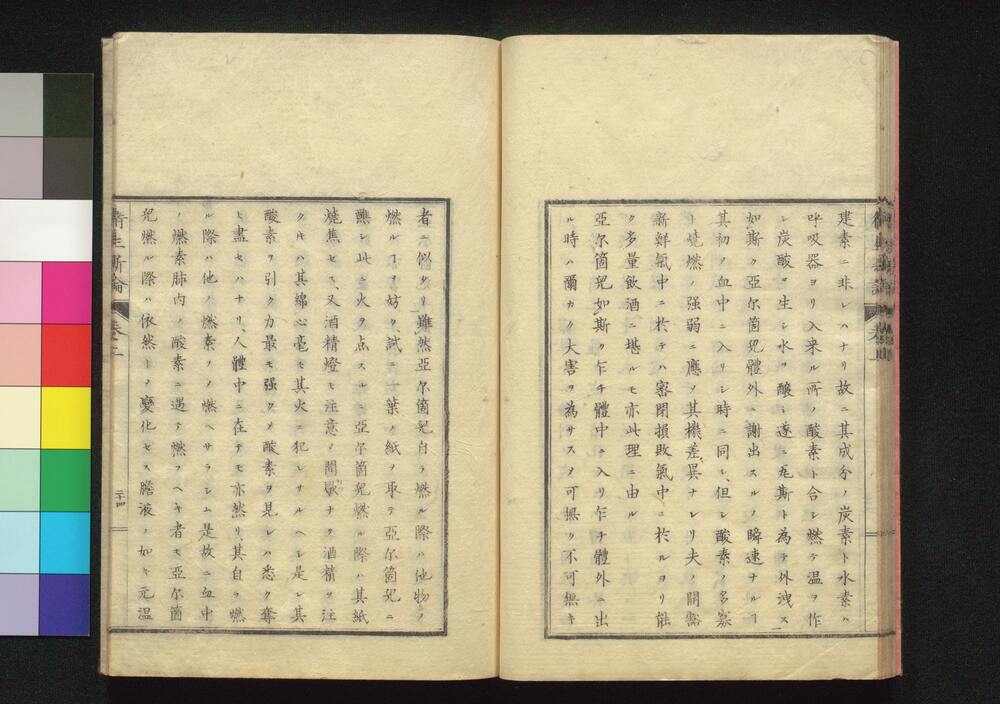 建素ニ非レハナリ故ニ其成分ノ炭素ト水素ハ
呼吸器ヨリ入来ル所ノ酸素ト合シ燃テ温ヲ作
シ炭酸ヲ生シ水ヲ醸シ遂ニ瓦斯ト為テ外洩ス
如斯ク亞尔箇兒體外ニ謝出スルノ瞬速ナルヿ
其初メ血中ニ入リシ時ニ同シ但シ酸素ノ多寡
ト燒燃ノ强弱ニ應メ其機差異ナレリ夫ノ開豁
新鮮氣中ニ於テハ密閉損敗氣中ニ於ルヨリ能
ク多量飲酒ニ堪ルモ亦此理ニ由ル
亞尔箇兒如斯ク乍チ體中ニ入リ乍チ體外ニ出
ル時ハ爾カク大害ヲ為サスメ可無ク不可無キ
者ニ似タリ雖然亞尔箇兒自ラ燃ル際ハ他物ノ
燃ルヿヲ妨ク試ニ一葉ノ紙ヲ取テ亞尔箇兒ニ
醮シ此ニ火ヲ点スルニ亞尔箇兒燃ル際ハ其紙
燒焦セス又酒精燈モ注意メ間歇ナク酒精ヲ注
ク片ハ其綿心毫モ其火ニ犯レサルヘシ是レ其
酸素ヲ引ク力最モ强クメ酸素ヲ見レハ悉ク奪
ヒ盡セハナリ人體中ニ在テモ亦然リ其自ラ燃
ル際ハ他ノ燃素ヲメ燃ヘサラシム是故ニ血中
ノ燃素肺内ノ酸素ニ遇テ燃ヲヘキ者モ亞尔箇
兒燃ル際ハ依然トメ變化セス膽液ノ如キ元温
衛生新論
卷之二
二十四